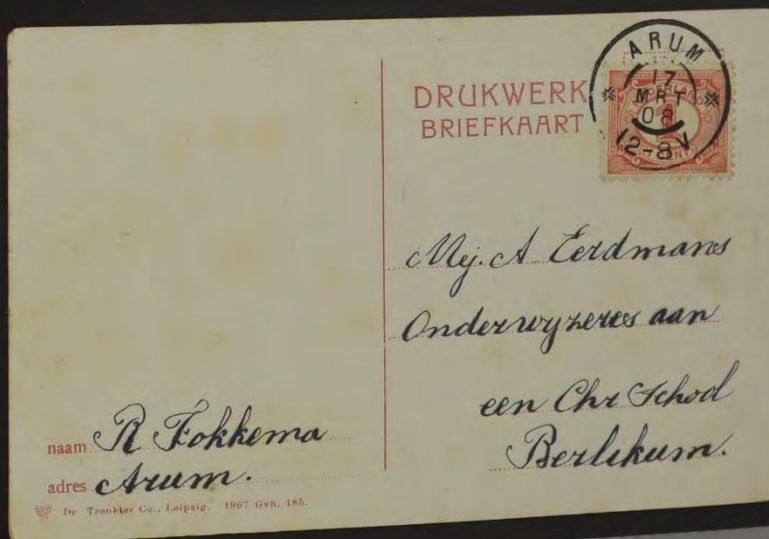 DRUKWERK
BRIEFKAART
ARUM
17
MRT
08
12-8V
NEDERLAND
1
CENT
Mej. A Eerdmans
Onderwyzeres aan
een Chr School
Berlikum.
naam R Fokkema
adres Arum.
Dr Trenkler Co., Leipzig. 1907 Gvh. 185.